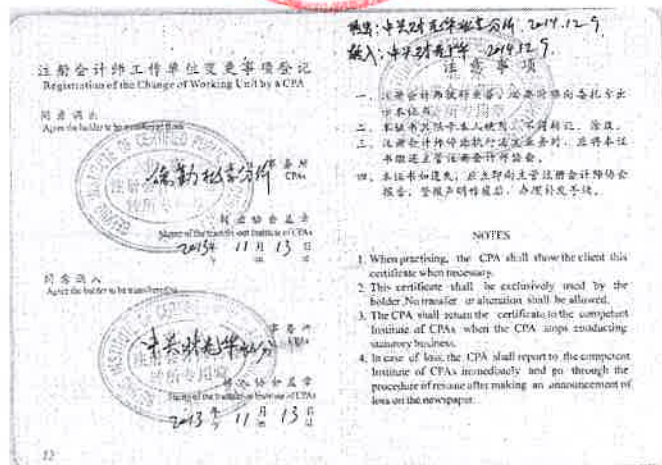 注册会计师工作单位变更事项登记
Registration of the Change of Working Unit by a CPA
同意调出
Agree the holder to be transferred from
事务所
CPAs
转出协会盖章
Stamp of the transfer-out Institute of CPAs
2013年 11月 13日
同意调入
Agree the holder to be transferred to
事务所
CPAs
转入协会盖章
Stamp of the transfer-in Institute of CPAs
2013年 11月 13日
12
2014.12.9.
2014.12.9.
注意事项
一、注册会计师执行业务，必要时须向委托方出
示本证书。
二、本证书只限于本人使用，不得转让、涂改。
三、注册会计师停止执行法定业务时，应将本证
书缴还主管注册会计师协会。
四、本证书如遗失，应立即向主管注册会计师协会
报告，登报声明作废后，办理补发手续。
NOTES
1. When practising, the CPA shall show the client this
certificate when necessary.
2. This certificate shall be exclusively used by the
holder. No transfer or alteration shall be allowed.
3. The CPA shall return the certificate to the competent
Institute of CPAs when the CPA stops conducting
statutory business.
4. In case of loss, the CPA shall report to the competent
Institute of CPAs immediately and go through the
procedure of reissue after making an announcement of
loss on the newspaper.